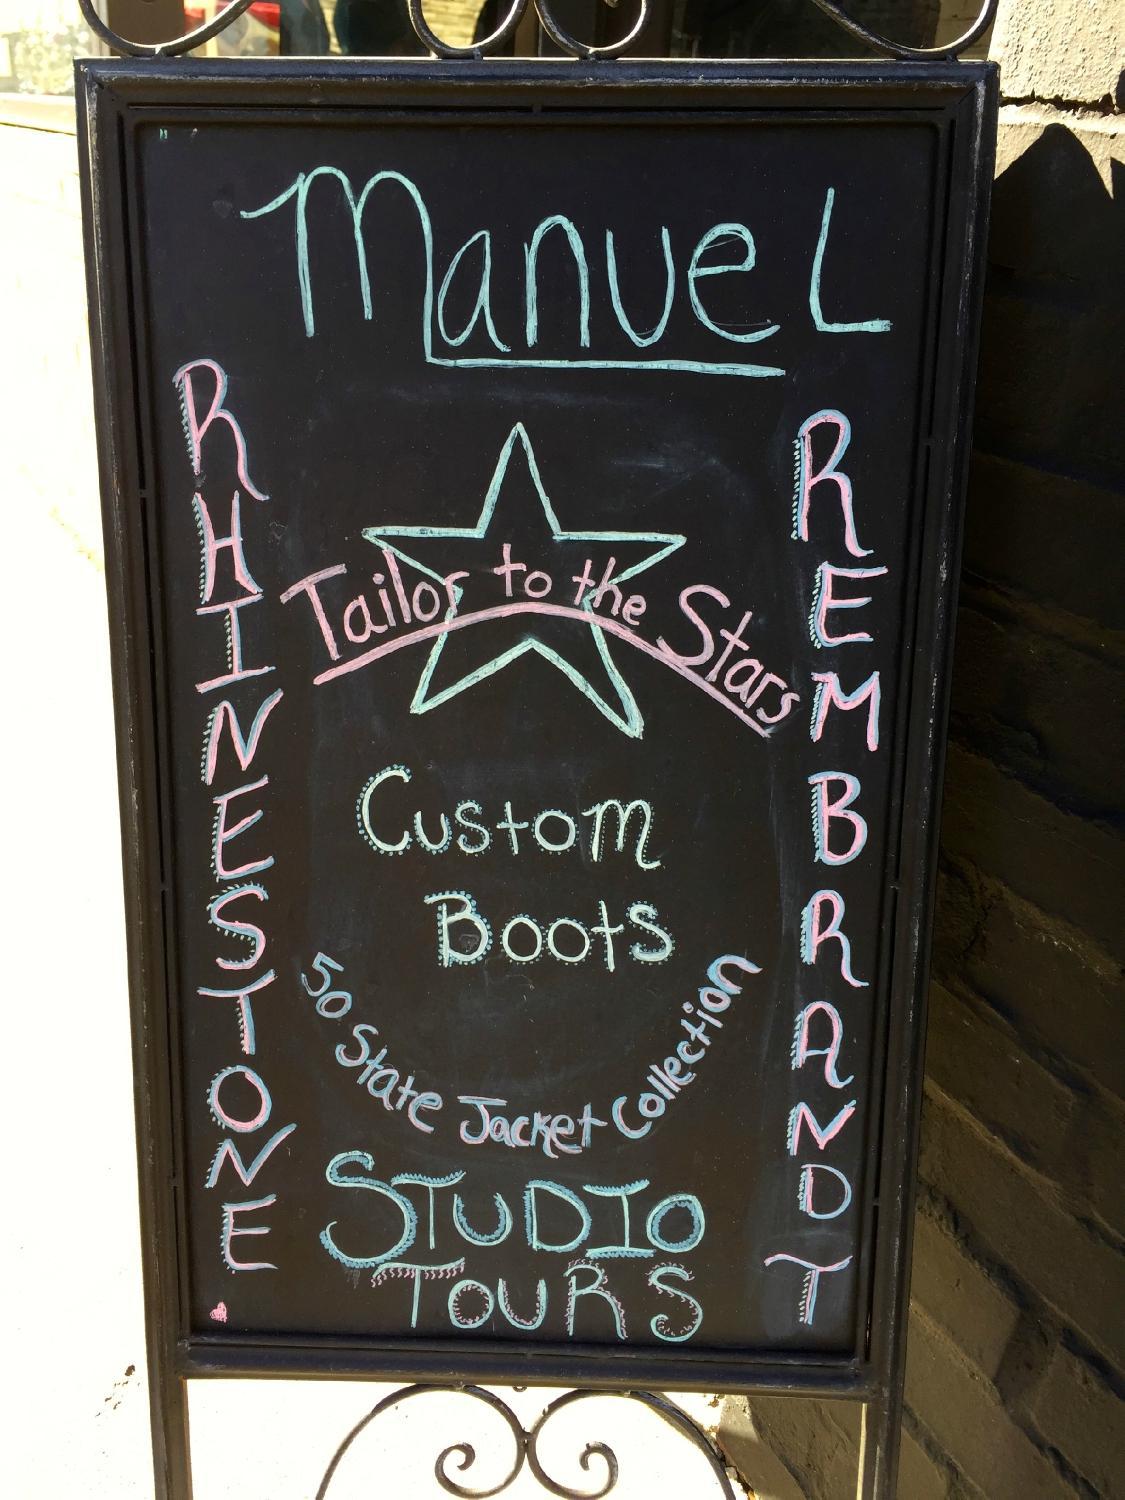 Manuel
RHINESTONE
REMBRANDT
Tailor to the Stars
Custom
Boots
50 State Jacket Collection
STUDIO
TOURS